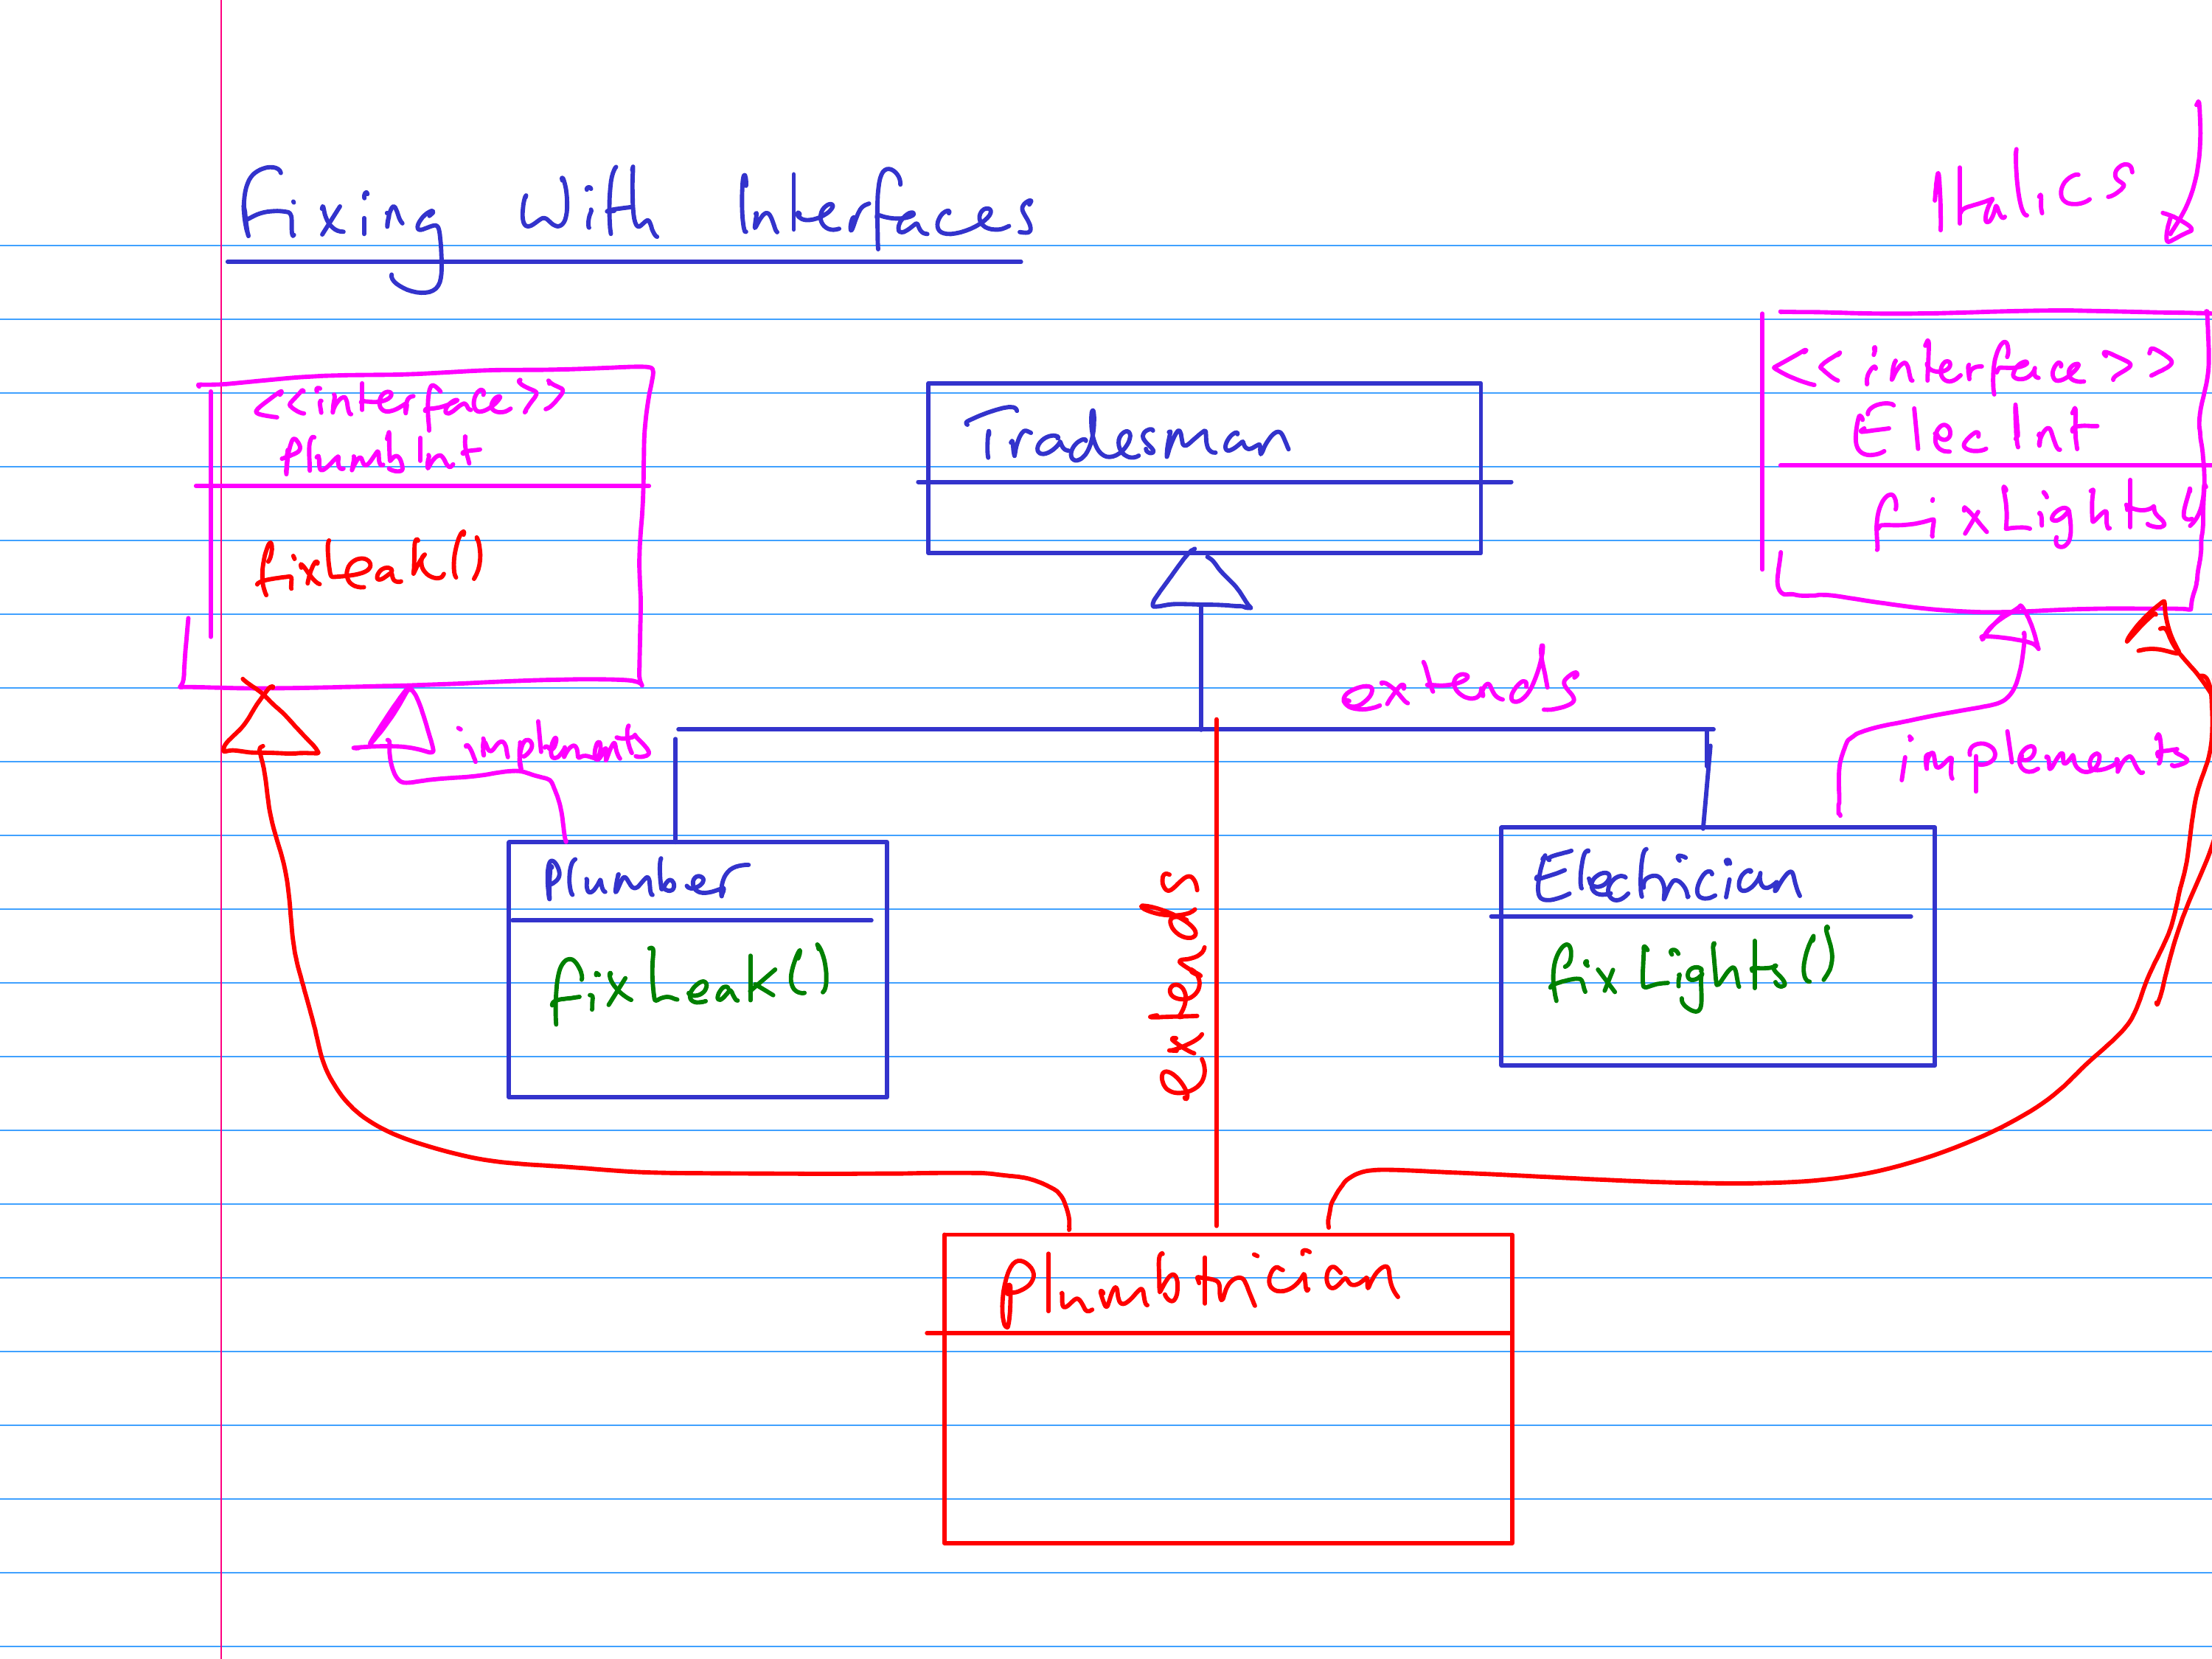 Fixing With Interfaces
Italics
<<interface>>
PlumbInt
fixLeak()
Tradesman
<<interface>>
ElecInt
fixLights(
extends
implements
implements
Plumber
fixLeak()
Electrician
fixLights()
extends
Plumbtrician